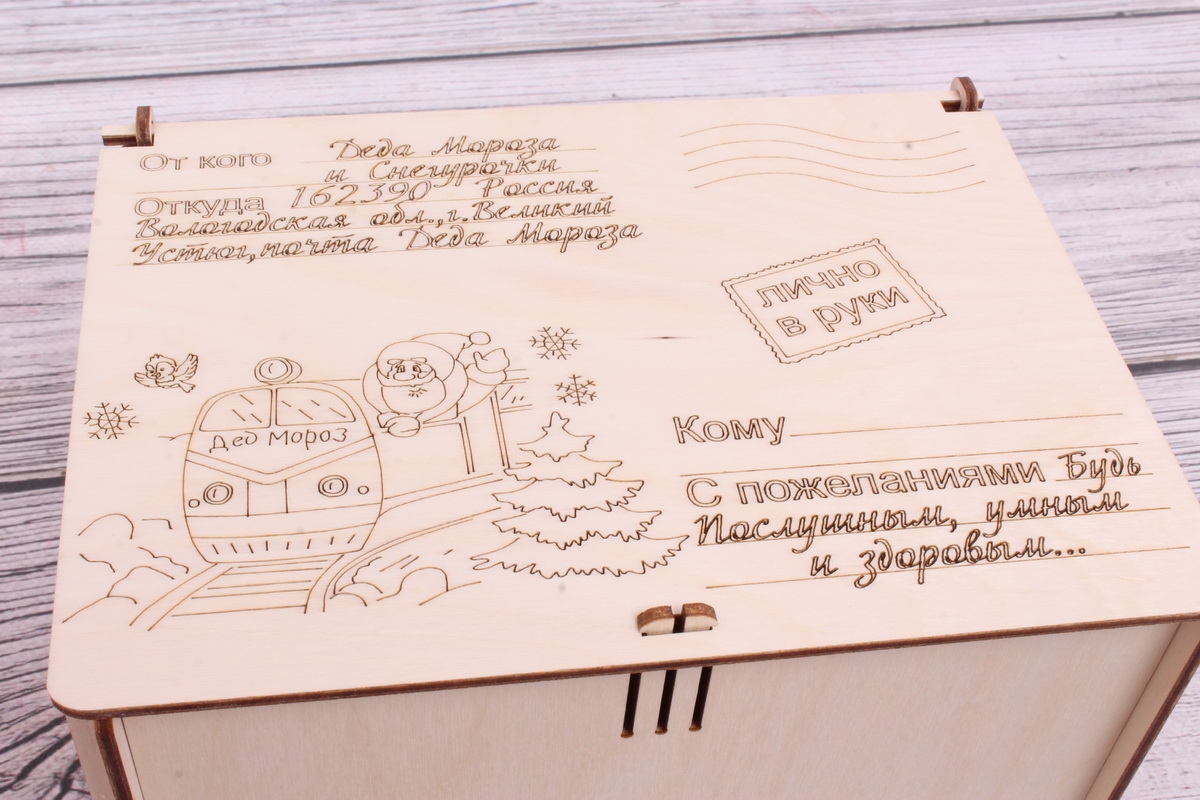 От кого Деда Мороза
и Снегурочки
Откуда 162390 Россия
Вологодская обл.,г.Великий
Устюг,почта Деда Мороза
лично
в руки
Дед Мороз
Кому
С пожеланиями Будь
Послушным, умным
и здоровым...